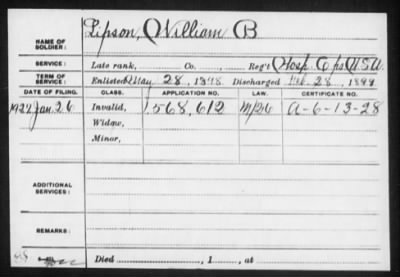 NAME OF SOLDIER: Lipson, William B
SERVICE: Late rank, Co. , Reg't Hosp Cps U.S.A.
TERM OF SERVICE: Enlisted May 28, 1898 Discharged Feb. 28, 1899
DATE OF FILING. CLASS. APPLICATION NO. LAW. CERTIFICATE NO.
1927 Jan. 26 Invalid, 1,568,612 A-6-13-28
Widow,
Minor,
ADDITIONAL SERVICES:
REMARKS:
Died , 1 , at